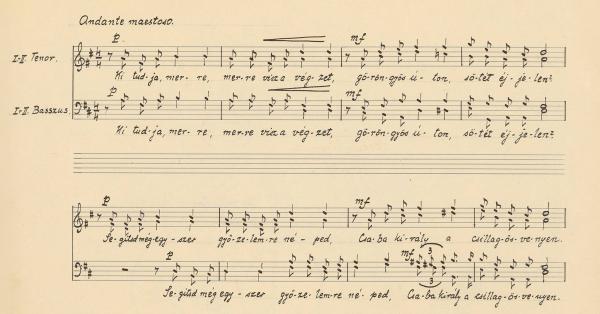 Andante maestoso.
p mf
I-II. Tenor.
Ki tud-ja, mer-re, mer-re visz a vég-zet, gö-rön-gyös ú-ton, sö-tét éj-je-len?
p mf
I-II. Basszus.
Ki tud-ja, mer-re, mer-re visz a vég-zet, gö-rön-gyös ú-ton, sö-tét éj-je-len?
p mf
Se-gítsd még egy-szer győ-ze-lem-re né-ped, Csa-ba ki-rály a csillag-ös-vé-nyen.
p mf 3
3
Se-gítsd még egy-szer győ-ze-lem-re né-ped, Csa-ba király a csillag-ös-vé-nyen.